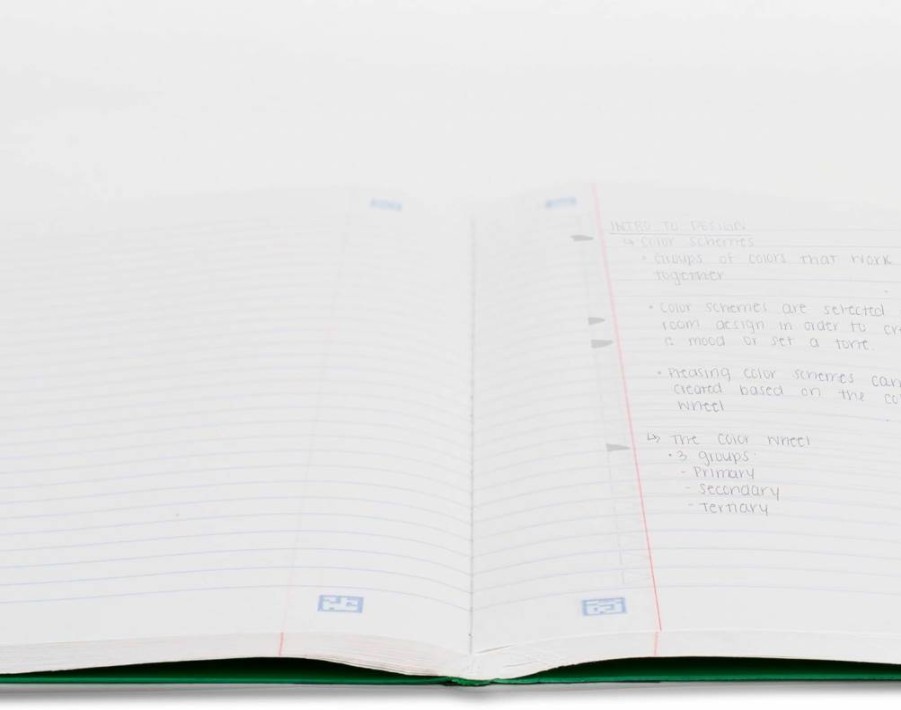 INTRO TO DESIGN
↳ Color schemes
• Groups of colors that work
together
• Color schemes are selected
room design in order to cr
a mood or set a tone.
• Pleasing color schemes can
created based on the co
wheel
↳ The Color Wheel
• 3 groups
- Primary
- Secondary
- Tertiary